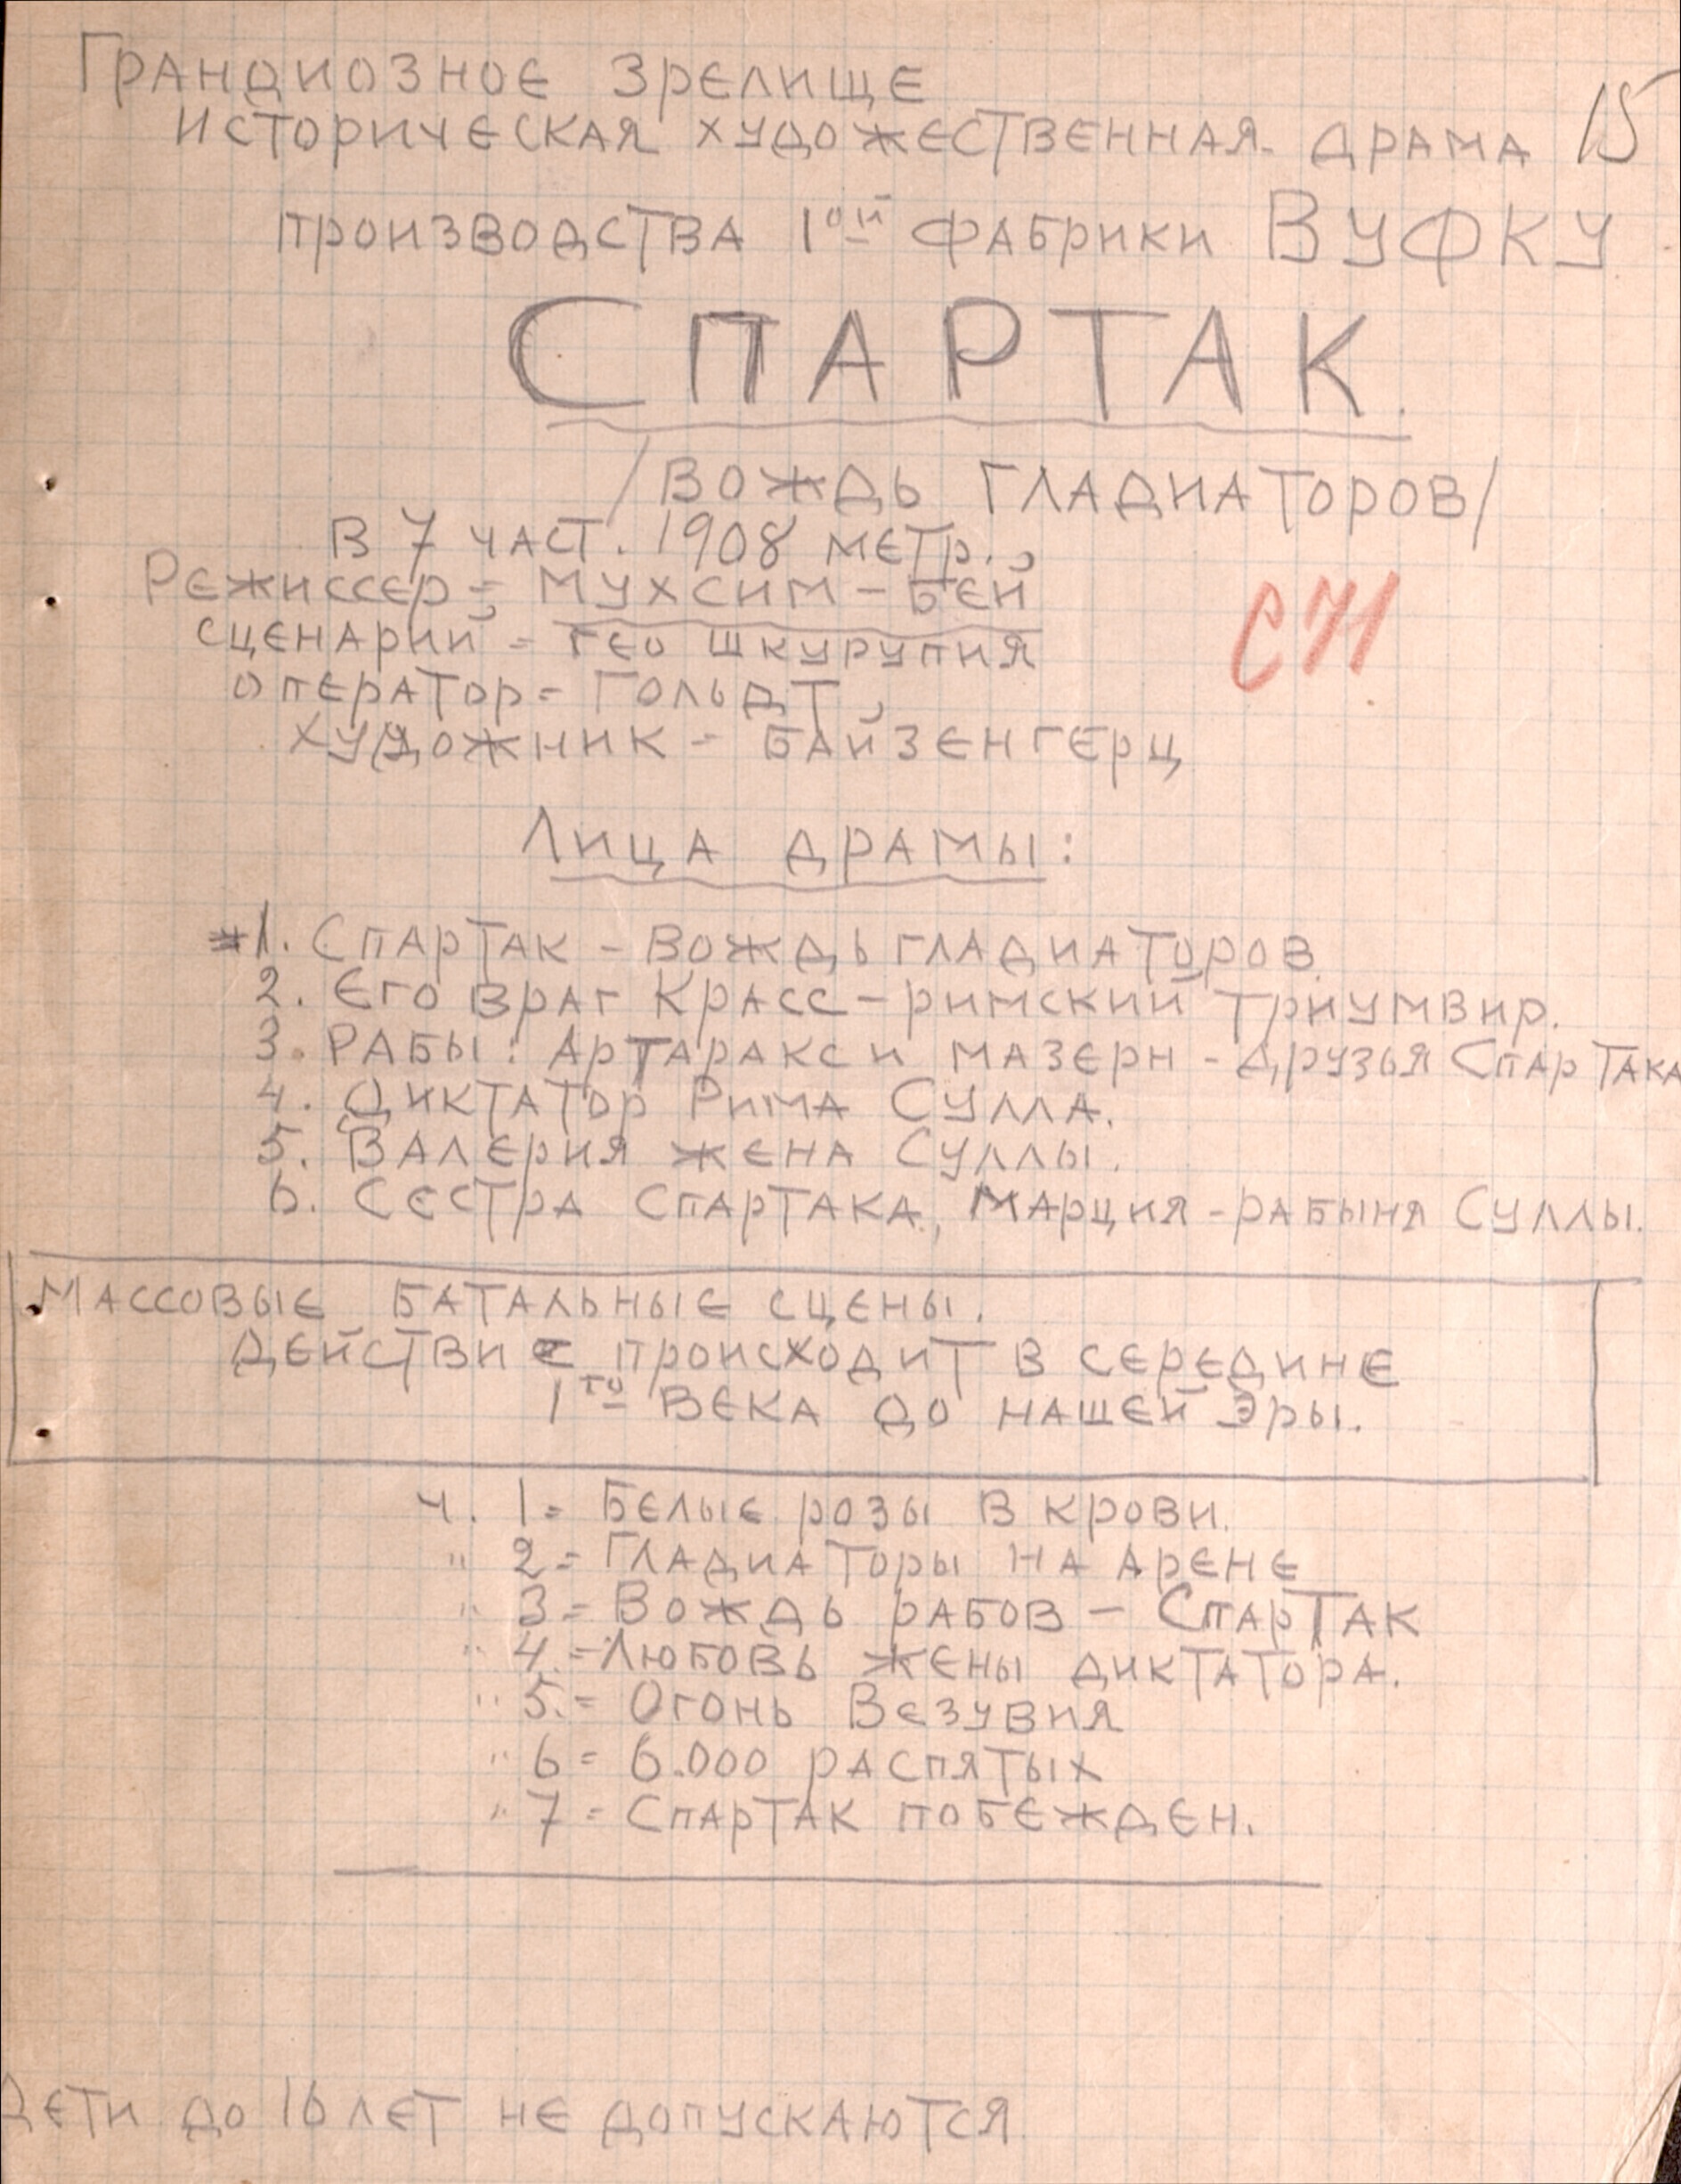 Грандиозное зрелище
историческая художественная драма 15
производства 1ой фабрики ВУФКУ
СПАРТАК.
/Вождь гладиаторов/
в 7 част. 1908 метр.,
Режиссер =, Мухсим-Бей
сценарий = Гео Шкурупия
оператор = Гольдт,
художник - Байзенгерц
Лица драмы:
1. Спартак - Вождь гладиаторов.
2. Его враг Красс - римский триумвир.
3. Рабы: Артаракс и Мазерн - друзья Спартака
4. Диктатор Рима Сулла.
5. Валерия жена Суллы.
6. Сестра Спартака, Марция - рабыня Суллы.
Массовые батальные сцены.
Действие происходит в середине
1го века до нашей эры.
ч. 1 = Белые розы в крови.
" 2 = Гладиаторы на арене
" 3 = Вождь рабов - Спартак
" 4. = Любовь жены диктатора.
" 5. = Огонь Везувия
" 6 = 6.000 распятых
" 7 = Спартак побежден.
Дети до 16 лет не допускаются